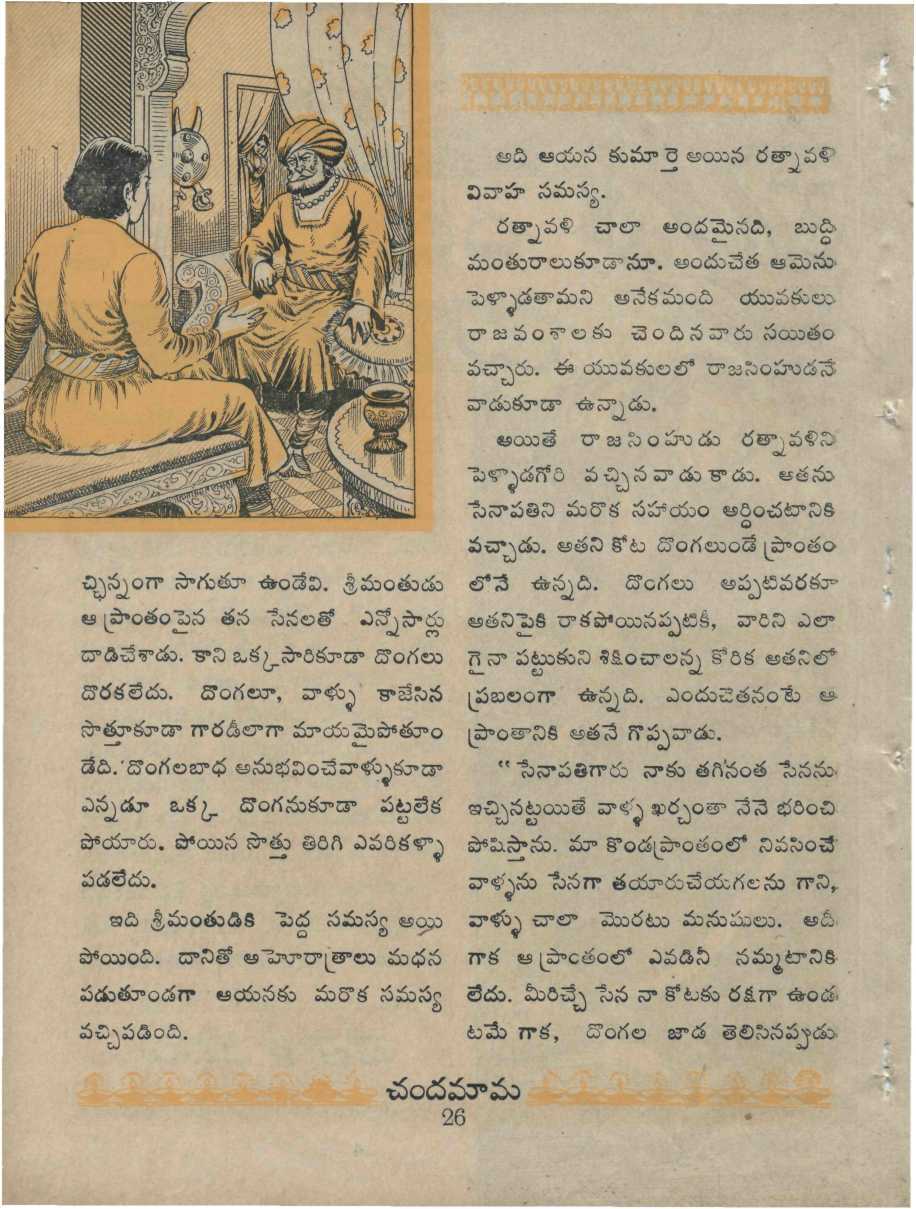 చ్ఛిన్నంగా సాగుతూ ఉండేవి. శ్రీమంతుడు
ఆ ప్రాంతంపైన తన సేనలతో ఎన్నోసార్లు
దాడిచేశాడు. కాని ఒక్కసారికూడా దొంగలు
దొరకలేదు. దొంగలూ, వాళ్ళు కాజేసిన
సొత్తూకూడా గారడీలాగా మాయమైపోతూం
డేది. దొంగలబాధ అనుభవించేవాళ్ళుకూడా
ఎన్నడూ ఒక్క దొంగనుకూడా పట్టలేక
పోయారు. పోయిన సొత్తు తిరిగి ఎవరికళ్ళా
పడలేదు.
ఇది శ్రీమంతుడికి పెద్ద సమస్య అయి
పోయింది. దానితో అహోరాత్రాలు మధన
పడుతూండగా ఆయనకు మరొక సమస్య
వచ్చిపడింది.
అది ఆయన కుమార్తె అయిన రత్నావళి
వివాహ సమస్య.
రత్నావళి చాలా అందమైనది, బుద్ధి
మంతురాలుకూడానూ. అందుచేత ఆమెను
పెళ్ళాడతామని అనేకమంది యువకులు
రాజవంశాలకు చెందినవారు సయితం
వచ్చారు. ఈ యువకులలో రాజసింహుడనే
వాడుకూడా ఉన్నాడు.
అయితే రాజసింహుడు రత్నావళిని
పెళ్ళాడగోరి వచ్చినవాడు కాడు. అతను
సేనాపతిని మరొక సహాయం అర్ధించటానికి
వచ్చాడు. అతని కోట దొంగలుండే ప్రాంతం
లోనే ఉన్నది. దొంగలు అప్పటివరకూ
అతనిపైకి రాకపోయినప్పటికీ, వారిని ఎలా
గైనా పట్టుకుని శిక్షించాలన్న కోరిక అతనిలో
ప్రబలంగా ఉన్నది. ఎందుచేతనంటే ఆ
ప్రాంతానికి అతనే గొప్పవాడు.
“సేనాపతిగారు నాకు తగినంత సేనను
ఇచ్చినట్టయితే వాళ్ళ ఖర్చంతా నేనే భరించి
పోషిస్తాను. మా కొండప్రాంతంలో నివసించే
వాళ్ళను సేనగా తయారుచేయగలను గాని,
వాళ్ళు చాలా మొరటు మనుషులు. అదీ
గాక ఆ ప్రాంతంలో ఎవడినీ నమ్మటానికి
లేదు. మీరిచ్చే సేన నా కోటకు రక్షగా ఉండ
టమే గాక, దొంగల జాడ తెలిసినప్పుడు
చందమామ
26